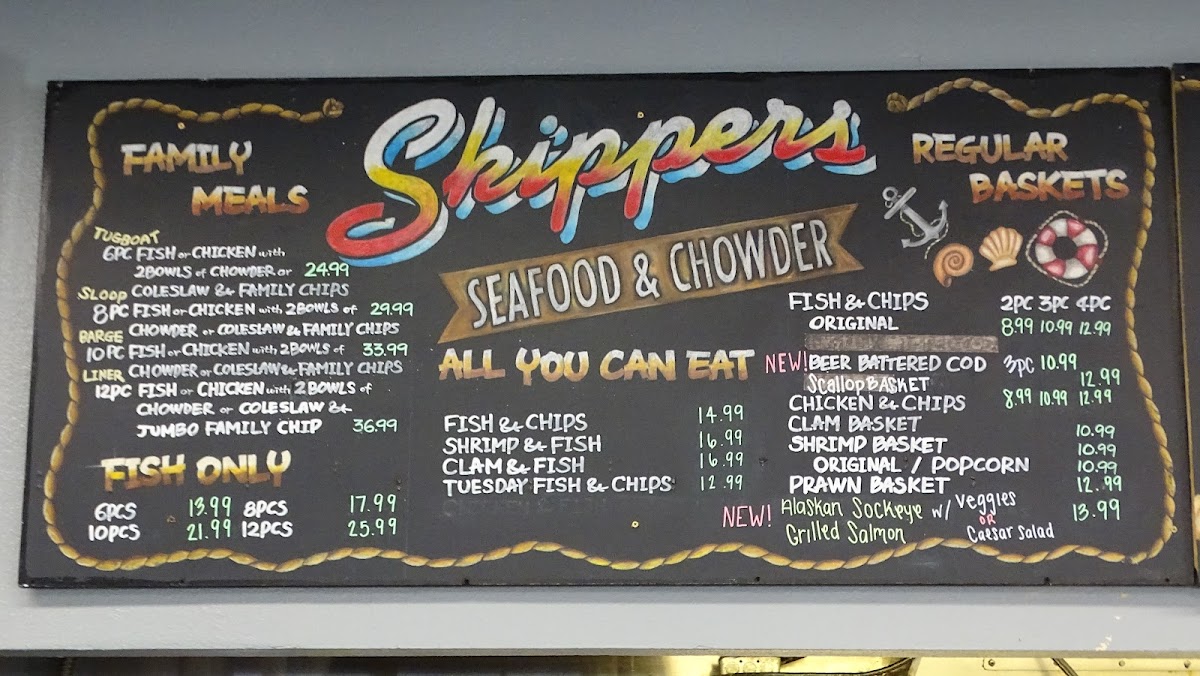 Skippers
SEAFOOD & CHOWDER
FAMILY
MEALS
TUGBOAT
6PC FISH or CHICKEN with
2 BOWLS of CHOWDER or 24.99
COLESLAW & FAMILY CHIPS
SLOOP
8PC FISH or CHICKEN with 2 BOWLS of 29.99
CHOWDER or COLESLAW & FAMILY CHIPS
BARGE
10PC FISH or CHICKEN with 2 BOWLS of 33.99
CHOWDER or COLESLAW & FAMILY CHIPS
LINER
12PC FISH or CHICKEN with 2 BOWLS of
CHOWDER or COLESLAW &
JUMBO FAMILY CHIP 36.99
FISH ONLY
6PCS 13.99 8PCS 17.99
10PCS 21.99 12PCS 25.99
ALL YOU CAN EAT
FISH & CHIPS 14.99
SHRIMP & FISH 16.99
CLAM & FISH 16.99
TUESDAY FISH & CHIPS 12.99
REGULAR
BASKETS
FISH & CHIPS 2PC 3PC 4PC
ORIGINAL 8.99 10.99 12.99
NEW! BEER BATTERED COD 3PC 10.99
Scallop BASKET 12.99
CHICKEN & CHIPS 8.99 10.99 12.99
CLAM BASKET 10.99
SHRIMP BASKET 10.99
ORIGINAL / POPCORN 10.99
PRAWN BASKET 12.99
NEW! Alaskan Sockeye w/ Veggies 13.99
Grilled Salmon OR Caesar Salad